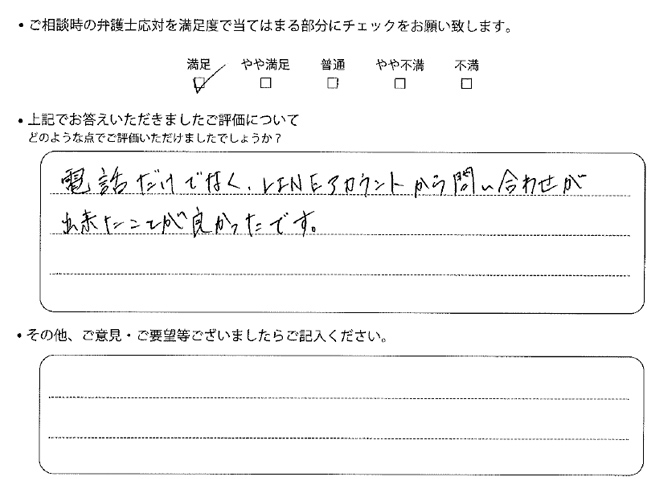 ・ご相談時の弁護士応対を満足度で当てはまる部分にチェックをお願い致します。
満足 やや満足 普通 やや不満 不満
☑ □ □ □ □
・上記でお答えいただきましたご評価について
どのような点でご評価いただけましたでしょうか？
電話だけでなく、LINEアカウントから問い合わせが
出来たことが良かったです。
・その他、ご意見・ご要望等ございましたらご記入ください。